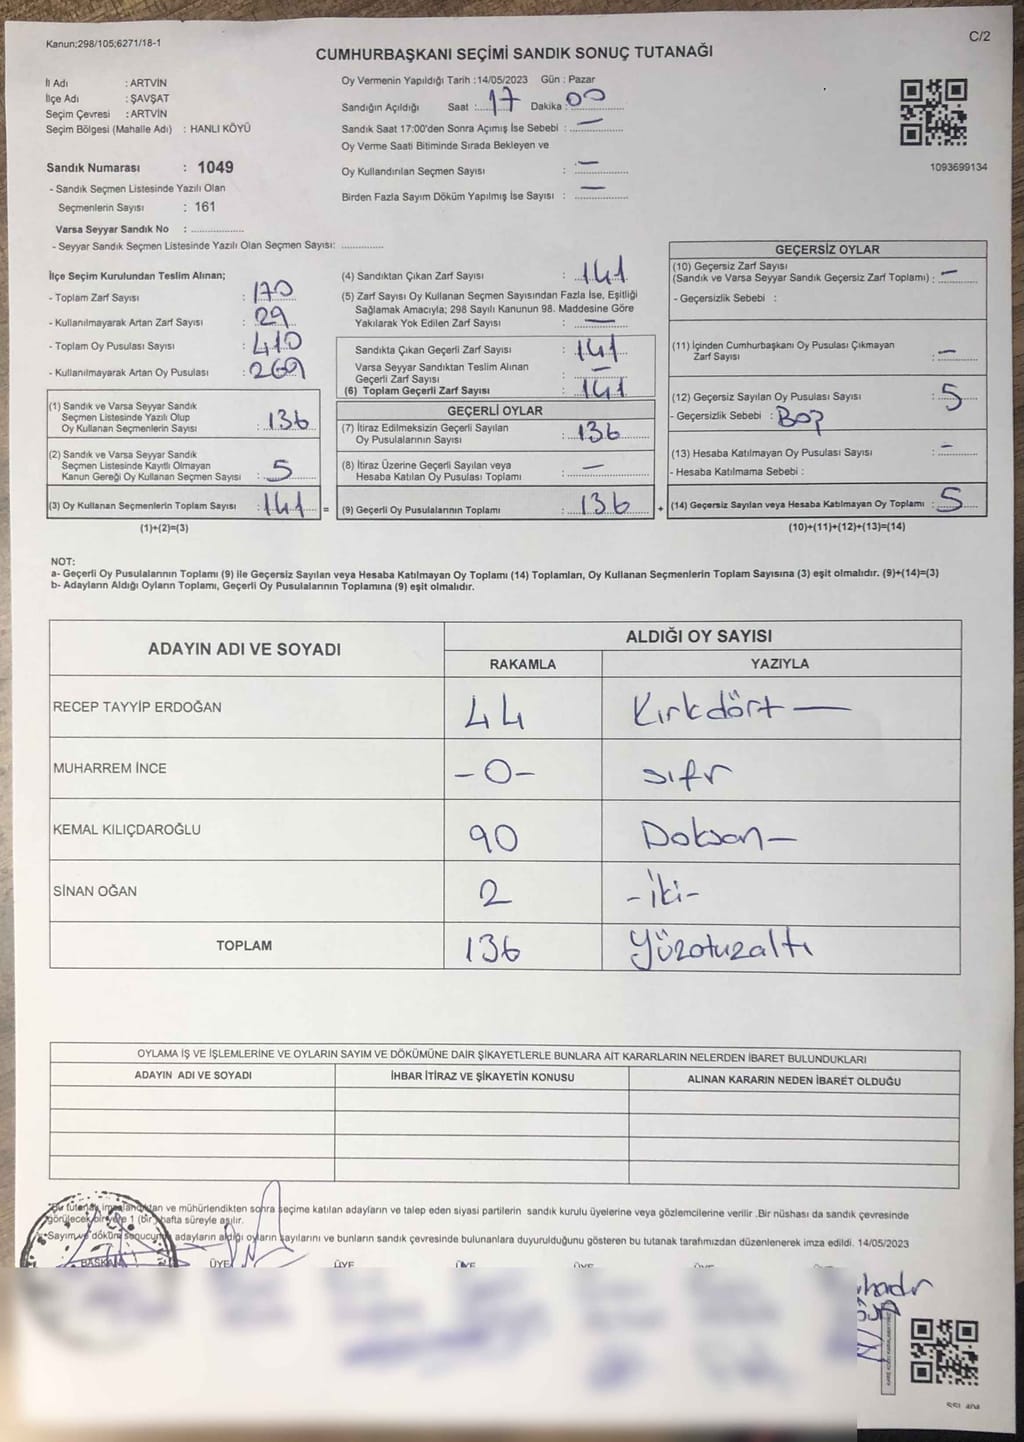 Kanun;298/105;6271/18-1
C/2
CUMHURBAŞKANI SEÇİMİ SANDIK SONUÇ TUTANAĞI
İl Adı : ARTVİN
İlçe Adı : ŞAVŞAT
Seçim Çevresi : ARTVİN
Seçim Bölgesi (Mahalle Adı) : HANLI KÖYÜ
Sandık Numarası : 1049
- Sandık Seçmen Listesinde Yazılı Olan
Seçmenlerin Sayısı : 161
Varsa Seyyar Sandık No : ................
- Seyyar Sandık Seçmen Listesinde Yazılı Olan Seçmen Sayısı: .............
Oy Vermenin Yapıldığı Tarih :14/05/2023 Gün : Pazar
Sandığın Açıldığı Saat : 17 Dakika : 00
Sandık Saat 17:00'den Sonra Açımış İse Sebebi : —
Oy Verme Saati Bitiminde Sırada Bekleyen ve
Oy Kullandırılan Seçmen Sayısı : —
Birden Fazla Sayım Döküm Yapılmış İse Sayısı : —
1093699134
İlçe Seçim Kurulundan Teslim Alınan;
- Toplam Zarf Sayısı : 170
- Kullanılmayarak Artan Zarf Sayısı : 29
- Toplam Oy Pusulası Sayısı : 410
- Kullanılmayarak Artan Oy Pusulası : 269
(1) Sandık ve Varsa Seyyar Sandık
Seçmen Listesinde Yazılı Olup
Oy Kullanan Seçmenlerin Sayısı : 136
(2) Sandık ve Varsa Seyyar Sandık
Seçmen Listesinde Kayıtlı Olmayan
Kanun Gereği Oy Kullanan Seçmen Sayısı : 5
(3) Oy Kullanan Seçmenlerin Toplam Sayısı : 141 =
(1)+(2)=(3)
(4) Sandıktan Çıkan Zarf Sayısı : 141
(5) Zarf Sayısı Oy Kullanan Seçmen Sayısından Fazla İse, Eşitliği
Sağlamak Amacıyla; 298 Sayılı Kanunun 98. Maddesine Göre
Yakılarak Yok Edilen Zarf Sayısı : —
Sandıkta Çıkan Geçerli Zarf Sayısı : 141
Varsa Seyyar Sandıktan Teslim Alınan
Geçerli Zarf Sayısı : —
(6) Toplam Geçerli Zarf Sayısı : 141
GEÇERLİ OYLAR
(7) İtiraz Edilmeksizin Geçerli Sayılan
Oy Pusulalarının Sayısı : 136
(8) İtiraz Üzerine Geçerli Sayılan veya
Hesaba Katılan Oy Pusulası Toplamı : —
(9) Geçerli Oy Pusulalarının Toplamı : 136 +
GEÇERSİZ OYLAR
(10) Geçersiz Zarf Sayısı
(Sandık ve Varsa Seyyar Sandık Geçersiz Zarf Toplamı) : —
- Geçersizlik Sebebi :
(11) İçinden Cumhurbaşkanı Oy Pusulası Çıkmayan
Zarf Sayısı : —
(12) Geçersiz Sayılan Oy Pusulası Sayısı : 5
- Geçersizlik Sebebi :
(13) Hesaba Katılmayan Oy Pusulası Sayısı : —
- Hesaba Katılmama Sebebi :
(14) Geçersiz Sayılan veya Hesaba Katılmayan Oy Toplamı : 5
(10)+(11)+(12)+(13)=(14)
NOT:
a- Geçerli Oy Pusulalarının Toplamı (9) ile Geçersiz Sayılan veya Hesaba Katılmayan Oy Toplamı (14) Toplamları, Oy Kullanan Seçmenlerin Toplam Sayısına (3) eşit olmalıdır. (9)+(14)=(3)
b- Adayların Aldığı Oyların Toplamı, Geçerli Oy Pusulalarının Toplamına (9) eşit olmalıdır.
ADAYIN ADI VE SOYADI ALDIĞI OY SAYISI
RAKAMLA YAZIYLA
RECEP TAYYİP ERDOĞAN 44 Kırkdört —
MUHARREM İNCE -0- sıfır
KEMAL KILIÇDAROĞLU 90 Doksan —
SİNAN OĞAN 2 -iki-
TOPLAM 136 Yüzotuzaltı
OYLAMA İŞ VE İŞLEMLERİNE VE OYLARIN SAYIM VE DÖKÜMÜNE DAİR ŞİKAYETLERLE BUNLARA AİT KARARLARIN NELERDEN İBARET BULUNDUKLARI
ADAYIN ADI VE SOYADI İHBAR İTİRAZ VE ŞİKAYETİN KONUSU ALINAN KARARIN NEDEN İBARET OLDUĞU
*Bu tutanak imzalandıktan ve mühürlendikten sonra seçime katılan adayların ve talep eden siyasi partilerin sandık kurulu üyelerine veya gözlemcilerine verilir .Bir nüshası da sandık çevresinde
görülecek bir yere 1 (bir) hafta süreyle asılır.
*Sayım ve döküm sonucunda adayların aldığı oyların sayılarını ve bunların sandık çevresinde bulunanlara duyurulduğunu gösteren bu tutanak tarafımızdan düzenlenerek imza edildi. 14/05/2023
BAŞKAN ÜYE ÜYE ÜYE ÜYE